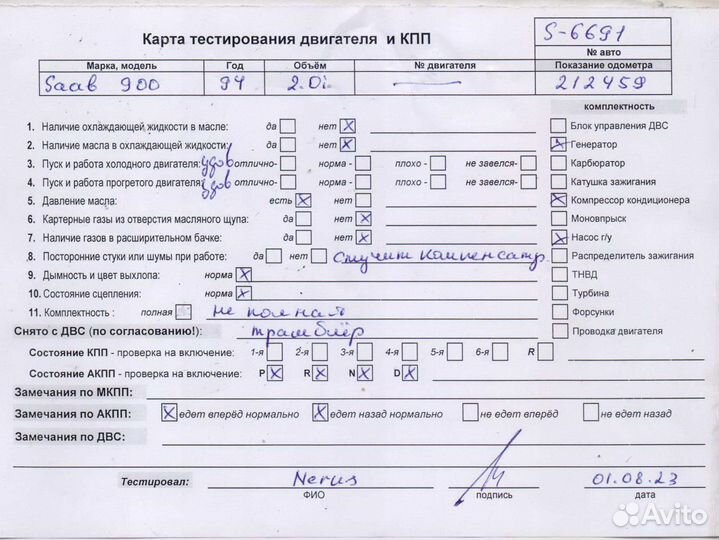 Карта тестирования двигателя и КПП
S-6691
№ авто
Марка, модель Год Объём № двигателя Показание одометра
Saab 900 94 2.0i 212459
комплектность
1. Наличие охлаждающей жидкости в масле: да нет X Блок управления ДВС
2. Наличие масла в охлаждающей жидкости: да нет X X Генератор
3. Пуск и работа холодного двигателя: удов отлично- норма - плохо - не завелся- Карбюратор
4. Пуск и работа прогретого двигателя: удов отлично- норма - плохо - не завелся- Катушка зажигания
5. Давление масла: есть X нет X Компрессор кондиционера
6. Картерные газы из отверстия масляного щупа: да нет X Моновпрыск
7. Наличие газов в расширительном бачке: да нет X X Насос г/у
8. Посторонние стуки или шумы при работе: да нет Стучит компенсатр. Распределитель зажигания
9. Дымность и цвет выхлопа: норма X ТНВД
10. Состояние сцепления: норма X Турбина
11. Комплектность : полная не полная Форсунки
Снято с ДВС (по согласованию!): трамблёр Проводка двигателя
Состояние КПП - проверка на включение: 1-я 2-я 3-я 4-я 5-я 6-я R
Состояние АКПП - проверка на включение: P X R X N X D X
Замечания по МКПП:
Замечания по АКПП: X едет вперёд нормально X едет назад нормально не едет вперёд не едет назад
Замечания по ДВС:
Тестировал: Nerus 01.08.23
ФИО подпись дата
Avito